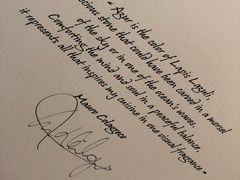 "Azur is the color of Lapis Lazuli,
cious stone that could have been carved in a morsel
of the sky or in one of the ocean's waves.
Comforting the mind and soul in a peaceful balance,
it represents all that inspires my cuisine in one visual fragrance"
Mauro Colagreco